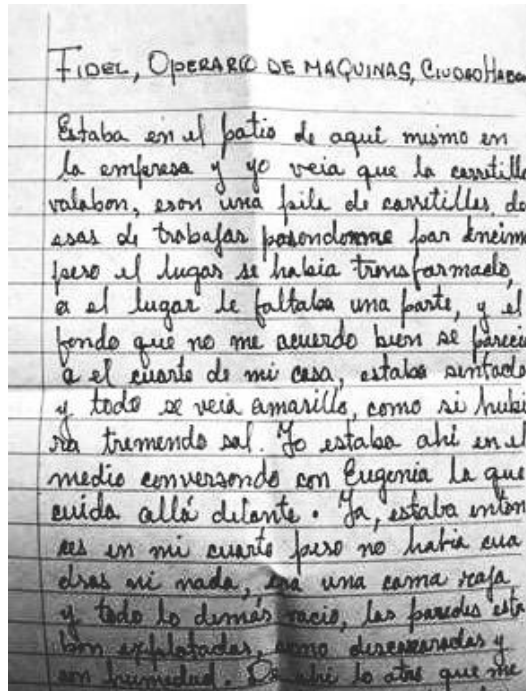 FIDEL, OPERARIO DE MAQUINAS, CIUDAD HABAN
Estaba en el patio de aqui mismo en
la empresa y yo veia que la carretilla
valabon, eran una pila de carretillas de
esas de trabajar pasandome por encima
pero el lugar se habia transformado,
a el lugar le faltaba una parte, y el
fondo que no me acuerdo bien se parecia
a el cuarto de mi casa, estaba sentado
y todo se veia amarillo, como si hubi
ra tremendo sol. Yo estaba ahi en el
medio conversando con Eugenia la que
cuida allá delante. Ya, estaba enton
ces en mi cuarto pero no habia cua
dros ni nada, era una cama roja
y todo lo demás vacio, las paredes esta
ban explotadas, como descascaradas y
con humedad. De ahi lo otro que me